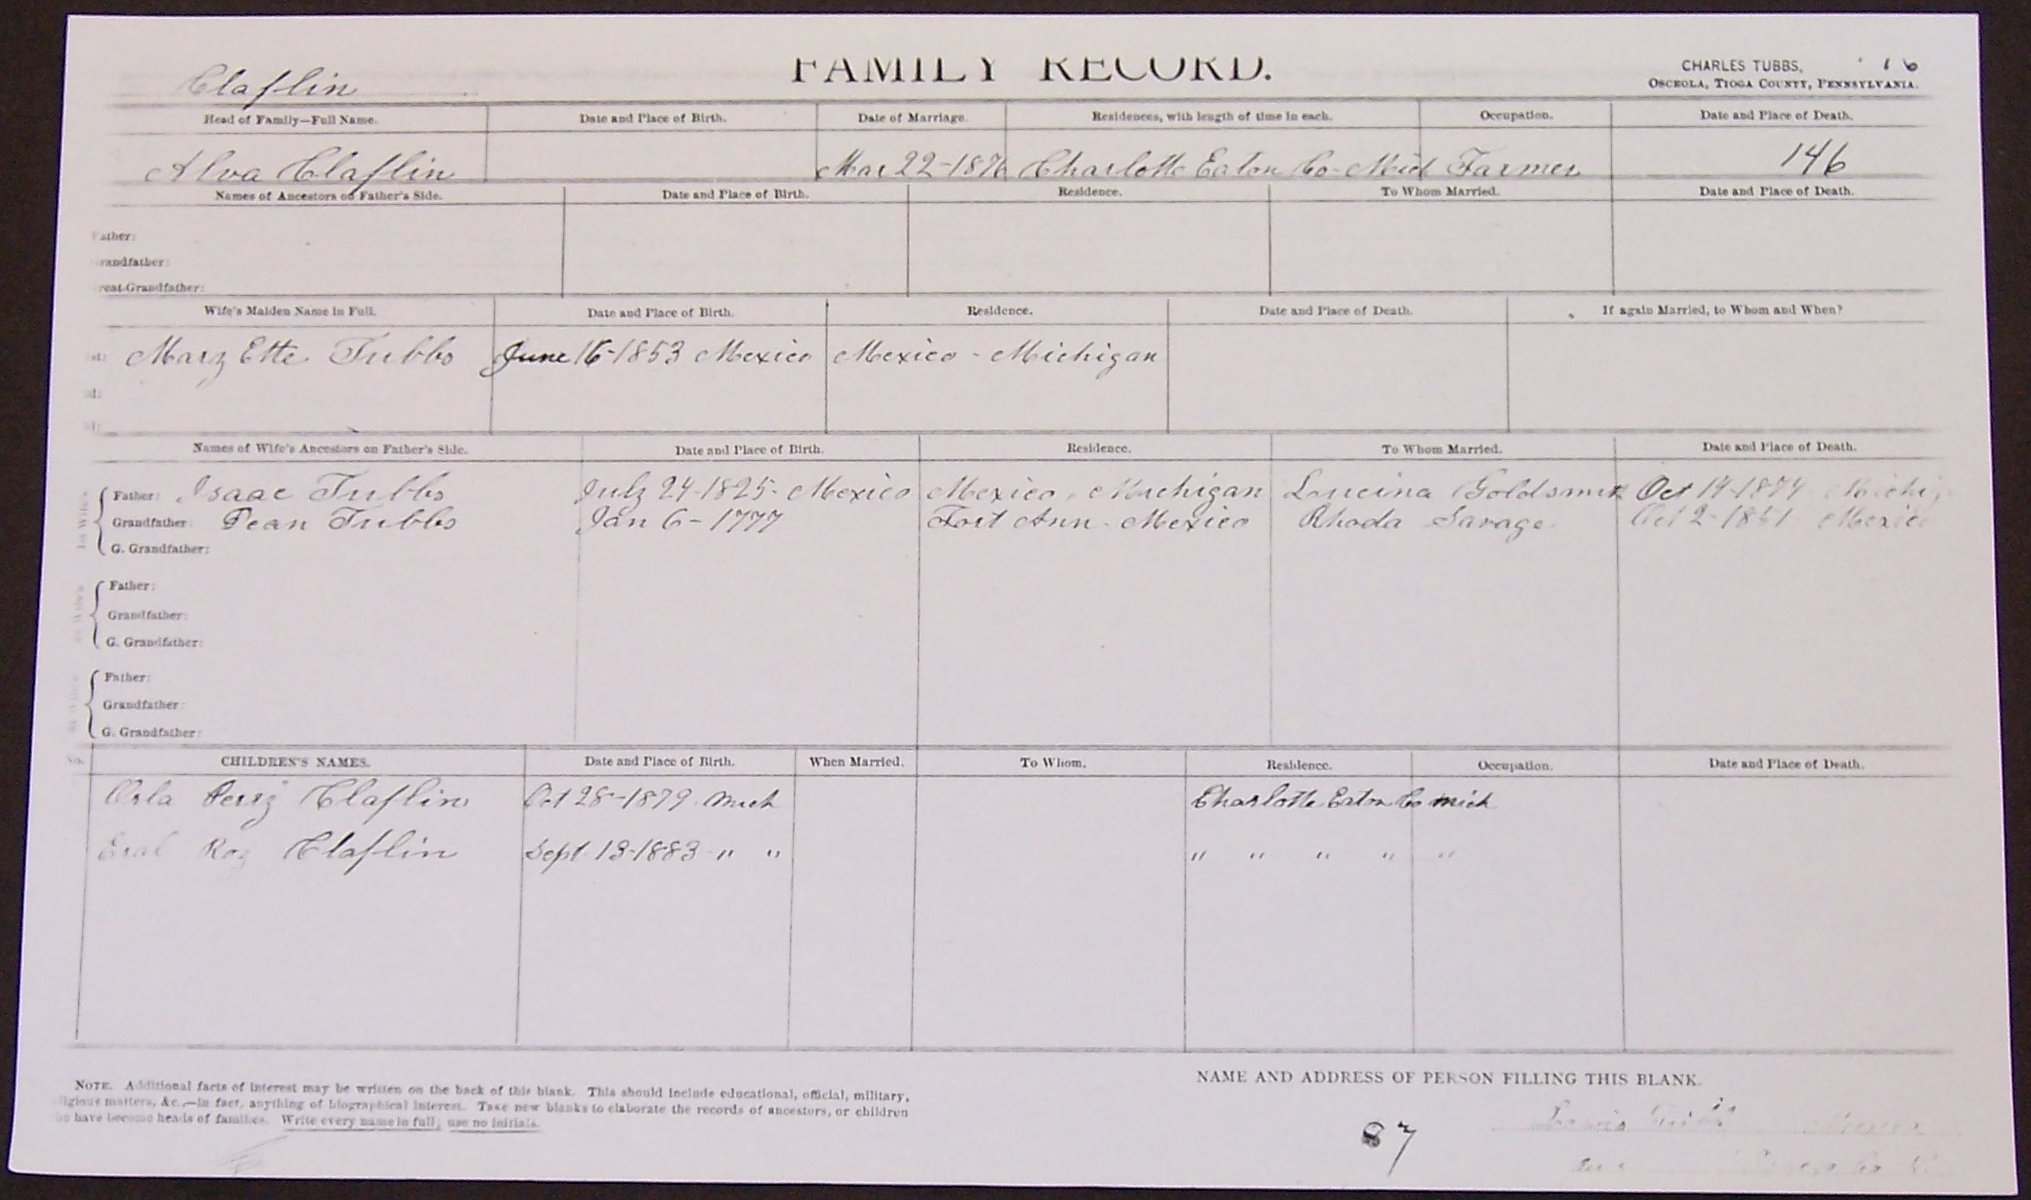 Claflin
FAMILY RECORD.
CHARLES TUBBS,
OSCEOLA, TIOGA COUNTY, PENNSYLVANIA.
Head of Family—Full Name. Date and Place of Birth. Date of Marriage. Residences, with length of time in each. Occupation. Date and Place of Death.
Alva Claflin Mar 22-1876 Charlotte Eaton Co- Mich Farmer 146
Names of Ancestors on Father's Side. Date and Place of Birth. Residence. To Whom Married. Date and Place of Death.
Father:
Grandfather:
Great-Grandfather:
Wife's Maiden Name in Full. Date and Place of Birth. Residence. Date and Place of Death. If again Married, to Whom and When?
Mary Ette Tubbs June 16-1853 Mexico Mexico - Michigan
Names of Wife's Ancestors on Father's Side. Date and Place of Birth. Residence. To Whom Married. Date and Place of Death.
Father: Isaac Tubbs July 24-1825- Mexico Mexico, Michigan Lucina Goldsmith Oct 14-1874
Grandfather: Pean Tubbs Jan 6-1777 Fort Ann- Mexico Rhoda Savage Oct 2- Mexico
G. Grandfather:
Father:
Grandfather:
G. Grandfather:
Father:
Grandfather:
G. Grandfather:
CHILDREN'S NAMES. Date and Place of Birth. When Married. To Whom. Residence. Occupation. Date and Place of Death.
Orla Perry Claflin Oct 28-1879 Mich Charlotte Eaton Co Mich
Roy Claflin Sept 13-1883 " " " " " " "
NOTE. Additional facts of interest may be written on the back of this blank. This should include educational, official, military,
religious matters, &c.,—in fact, anything of biographical interest. Take new blanks to elaborate the records of ancestors, or children
who have become heads of families. Write every name in full; use no initials.
NAME AND ADDRESS OF PERSON FILLING THIS BLANK.
87